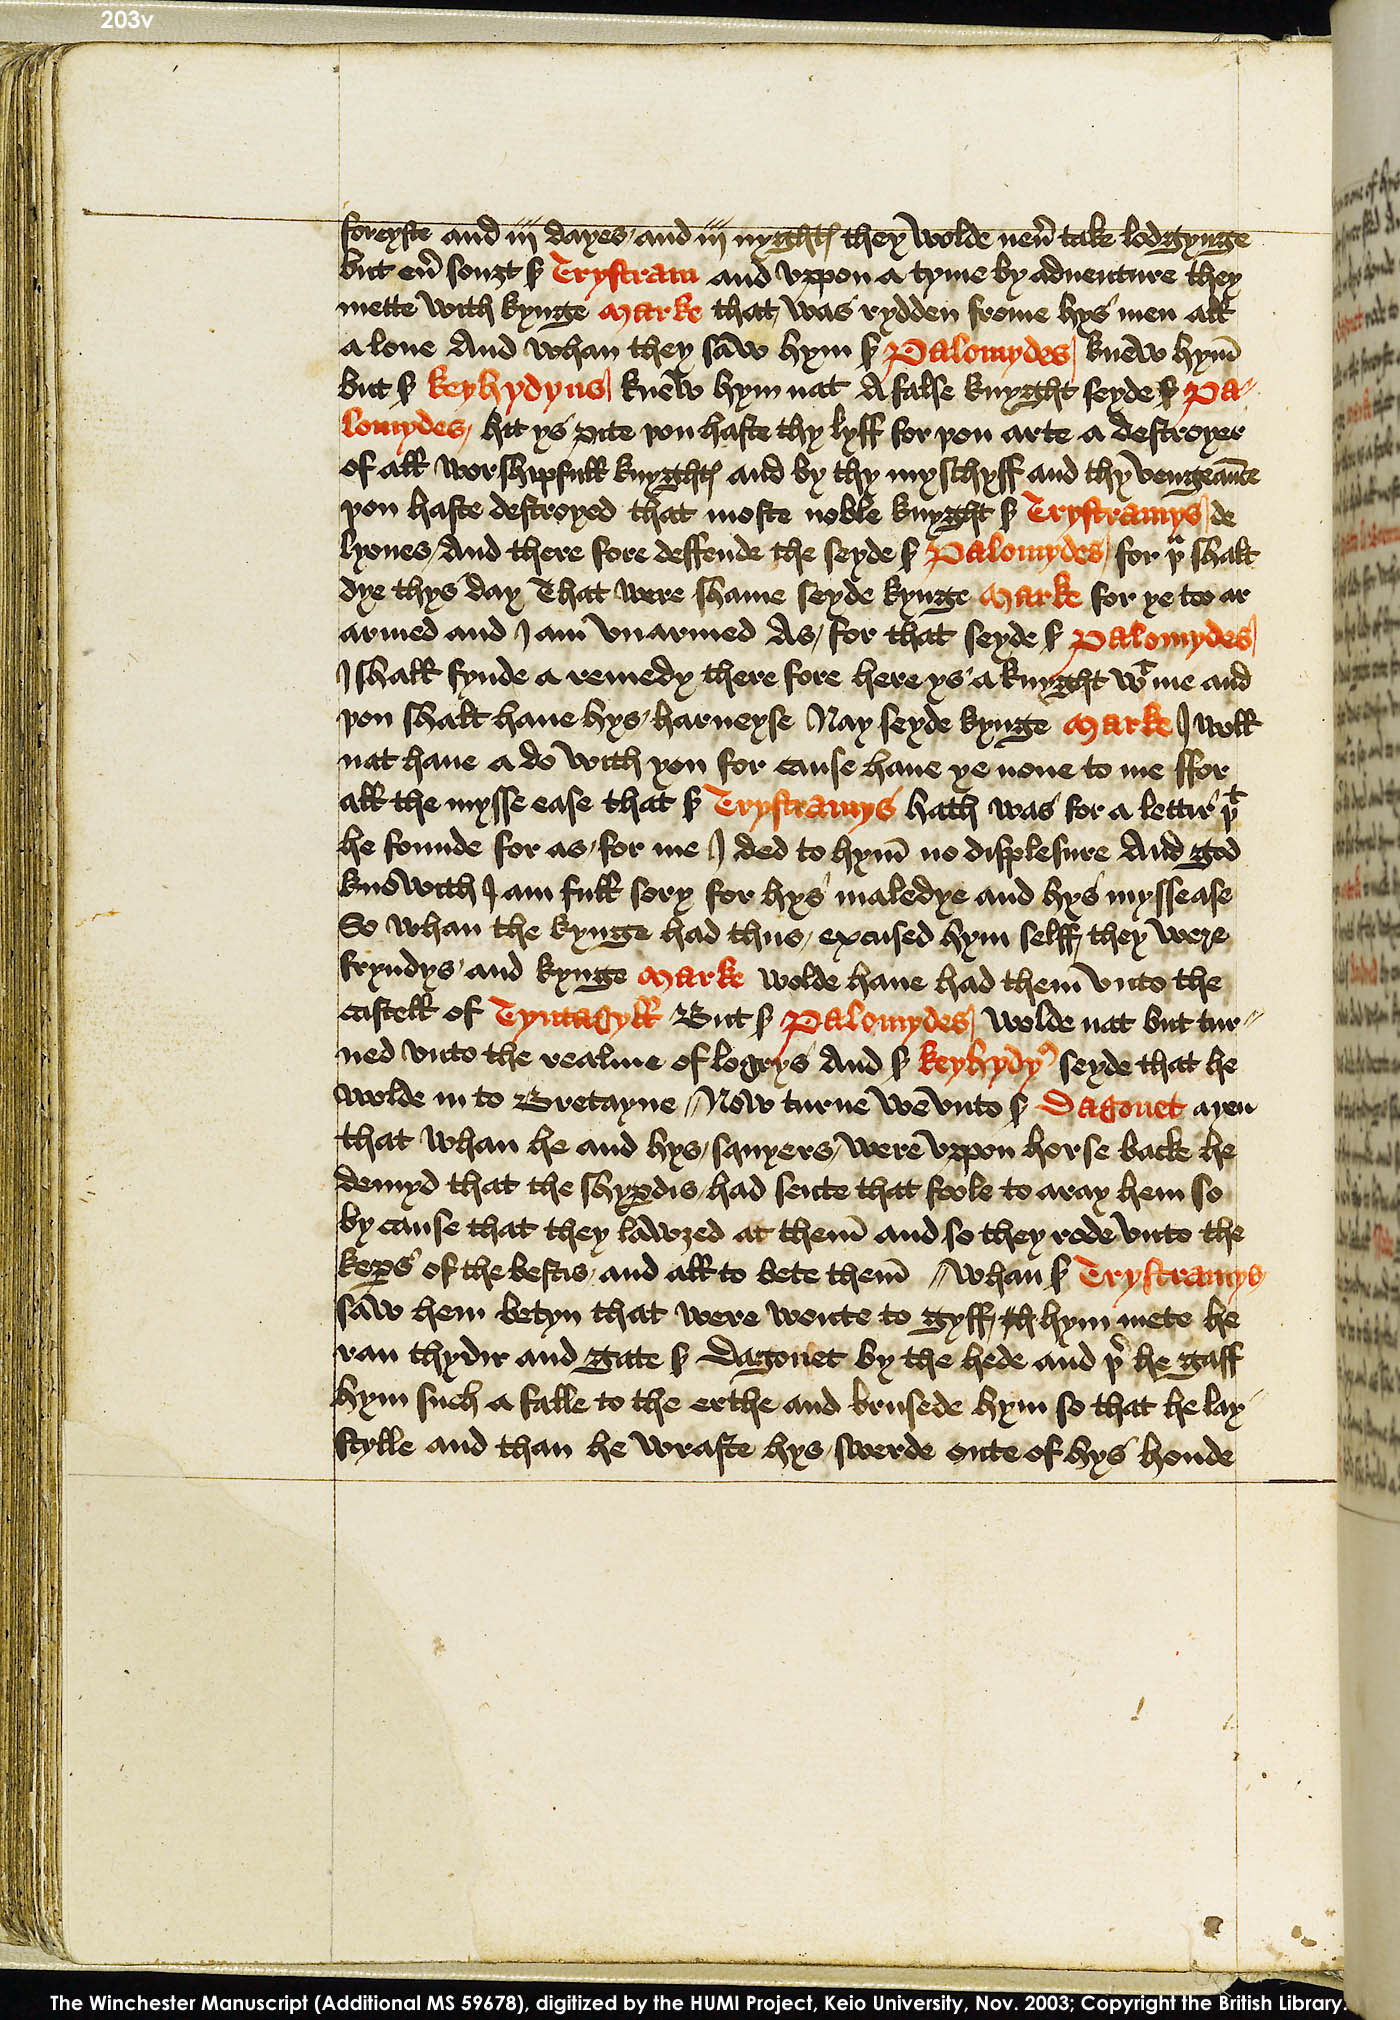 203v
foreyste and iij dayes and iij nyghtꝭ they wolde neu̅ take lodgynge
but eu̅ souȝt ẜ Trystram and vppon a tyme by aduenture they
mette with kynge Marke that was rydden frome hys men all
a lone And whan they saw hym ẜ Palomydes knew hym̅
but ẜ keyhydyus knew hym nat A false knyght seyde ẜ Pa-
lomydes hit ys pite þou haste thy lyff for þou arte a destroyer
of all worshipfull knyghtꝭ and by thy myschyff and thy vengeau̅ce
þou haste destroyed that moste noble knyght ẜ Trystramys de
lyones And there fore deffende the seyde ẜ Palomydes for þͧ shalt
dye thys day That were shame seyde kynge Marke for ye too ar
armed and I am vnarmed As for that seyde ẜ Palomydes
I shall fynde a remedy there fore here ys a knyght wͭ me and
þou shalt haue hys harneyse Nay seyde kynge Marke I woll
nat haue a do with you for cause haue ye none to me ffor
all the mysse ease that ẜ Trystramys hath was for a lettir þͭ
he founde for as for me I ded to hym̅ no displesure And god
knowith I am full sory for hys maledye and hys myssease
So whan the kynge had thus excused hym selff they were
fryndys and kynge Marke wolde haue had them̅ vnto the
castell of Tyntagyll But ẜ Palomydes wolde nat but tur-
ned vnto the realme of logrys And ẜ keyhydyꝰ seyde that he
wolde in to Bretayne // Now turne we vnto ẜ Dagonet ayen
that whan he and hys squyers were vppon horse back he
demyd that the shyꝑdis had sente that foole to aray hem so
by cause that they lawȝed at them̅ and so they rode vnto the
keꝑs of the bestis and all to bete them̅ // Whan ẜ Trystramys
saw hem betyn that were wonte to gyff th hym mete he
ran thydir and gate ẜ Dagonet by the hede and þͤ he gaff
hym such a falle to the erthe and brusede hym so that he lay
stylle and than he wraste hys swerde oute of hys honde
The Winchester Manuscript (Additional MS 59678), digitized by the HUMI Project, Keio University, Nov. 2003; Copyright the British Library.